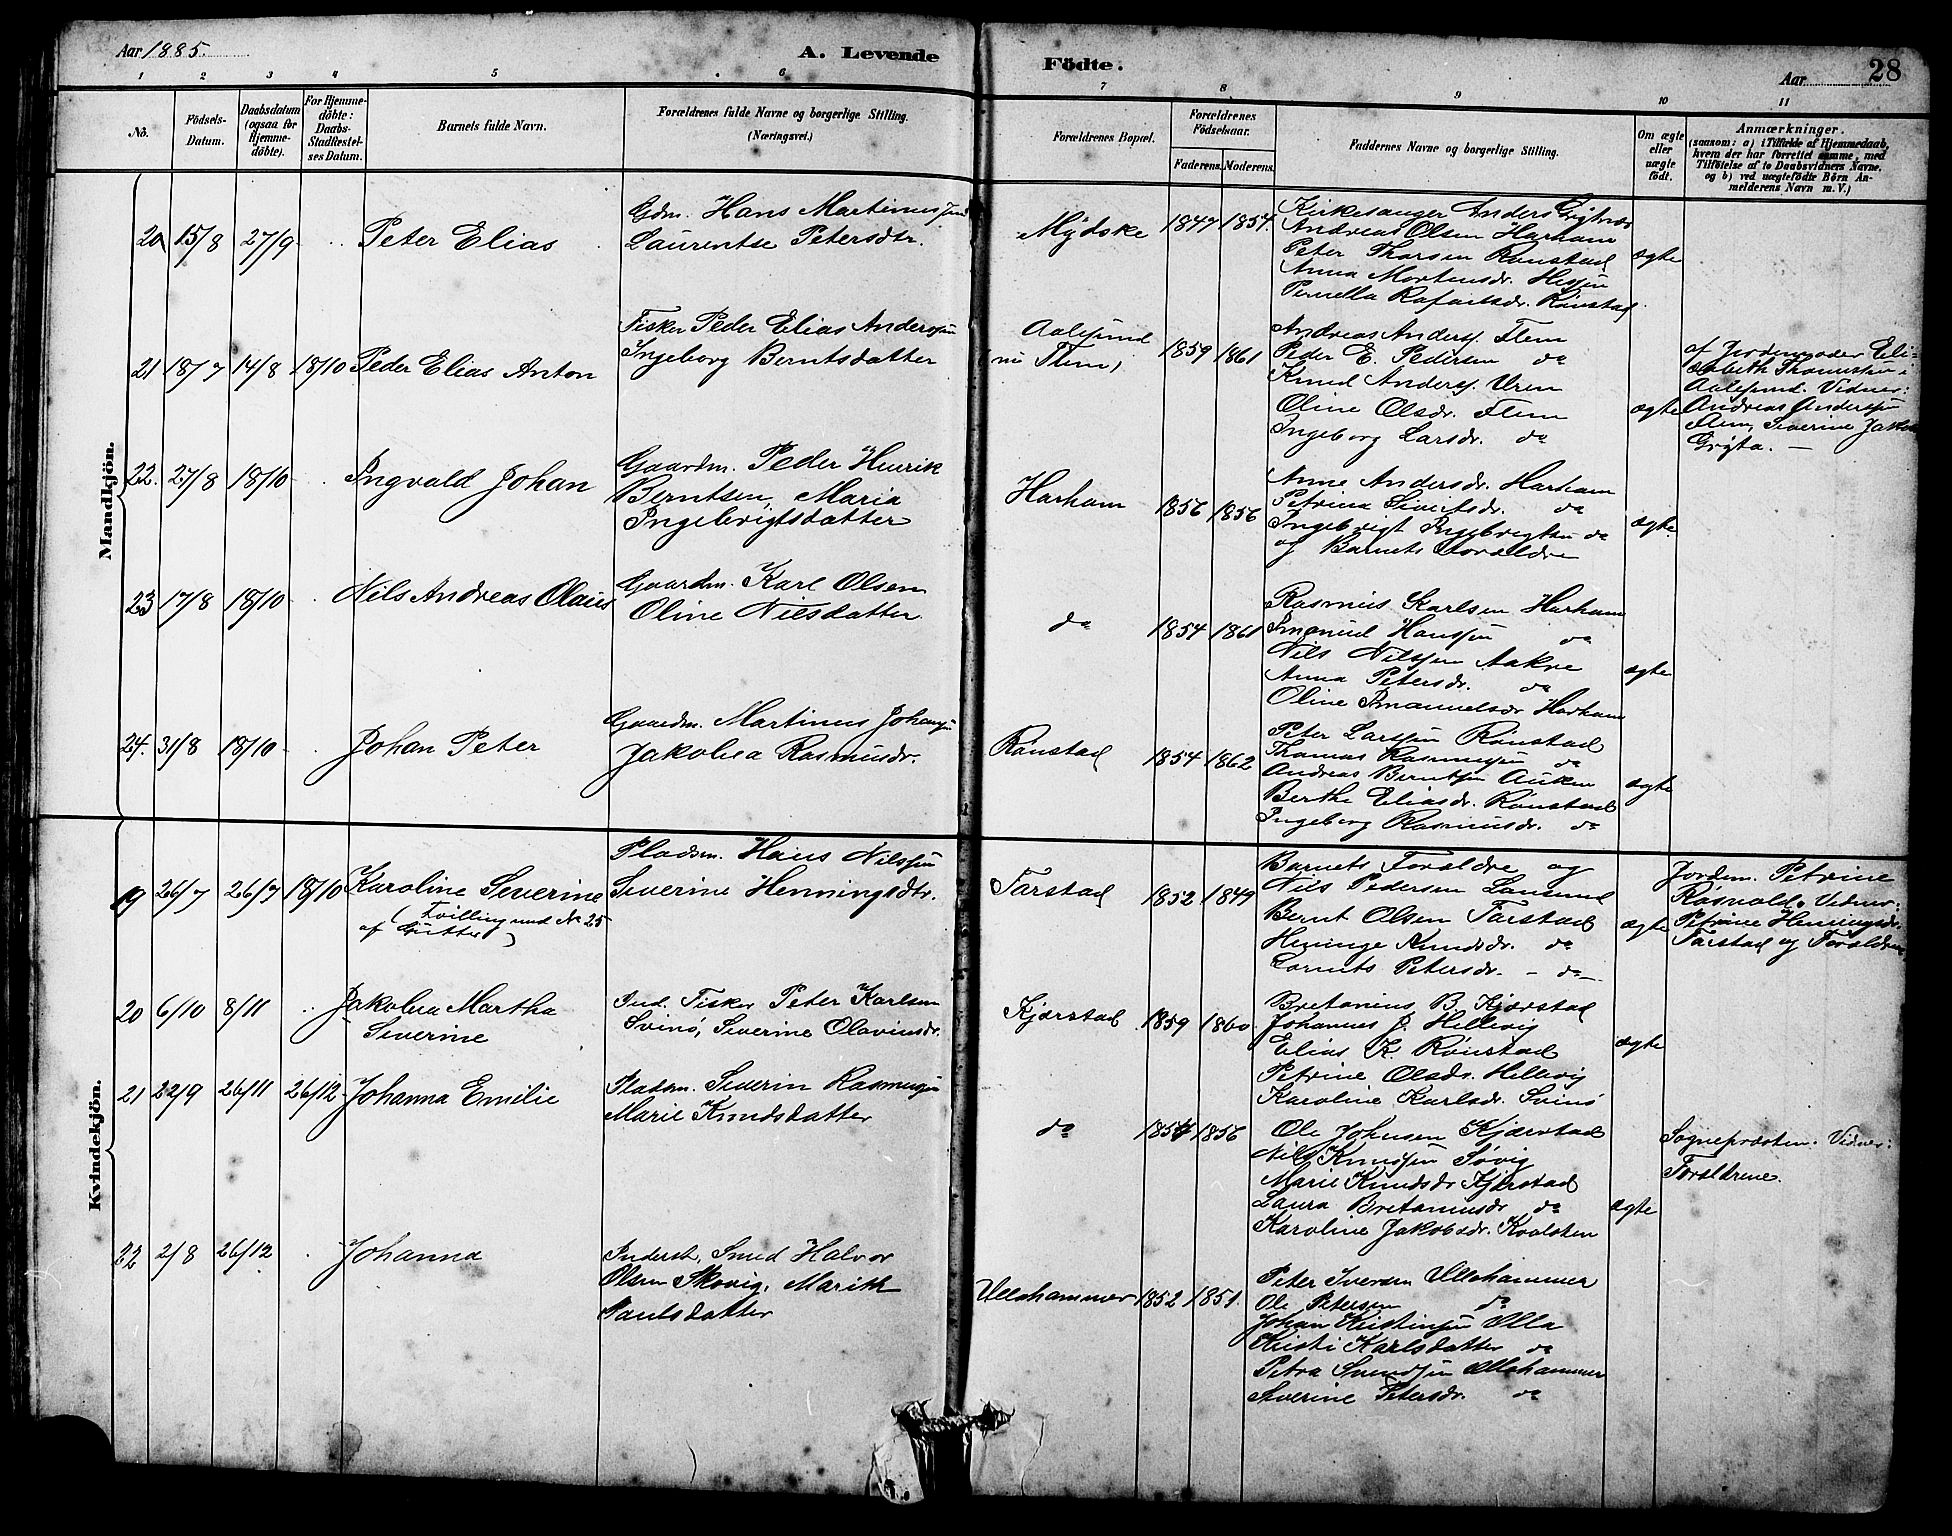 Aar 1885.
A. Levende Födte.
Aar
28
1 2 3 4 5 6 7 8 9 10 11
No.
Födsels-Datum.
Daabsdatum (ogsaa for Hjemme-döbte).
For Hjemme-döbte: Daabs-Stadfæstel-ses Datum.
Barnets fulde Navn.
Forældrenes fulde Navne og borgerlige Stilling. (Næringsvei.)
Forældrenes Bopæl.
Forældrenes Födselsaar.
Faderens. Moderens.
Faddernes Navne og borgerlige Stilling.
Om ægte eller uægte födt.
Anmærkninger.
(saasom: a) i Tilfælde af Hjemmedaab, hvem der har forrettet samme, med Tilföielse af to Daabsvidners Navne, og b) ved uægtefödte Börn An-melderens Navn m. V.)
Mandkjön.
20 15/8 27/9 " Peter Elias
Gdm. Hans Martinus
Laurentse Petersdtr.
Mydske 1847 1854.
Kirkesanger Anders Grytnæs
Andreas Olsen Harham
Peter Thorsen Rönstad
Anna Mortensdr. Hessen
Pernella Rafaelsdr. Rönstad
ægte
21 18/7 14/8 18/10 Peder Elias Anton
Fisker Peder Elias Anderssen
Ingeborg Berntsdatter
Aalesund
(nu Flem) 1859 1861
Andreas Anders. Flem
Peder E. Pedersen do
Knud Anders. Uren
Oline Olsdr. Flem
Ingeborg Larsdr. do
ægte
af Jordemoder Eli-
sabeth Thomassen i
Aalesund. Vidner:
Andreas Anderssen
Flem, Severine Jakobs
Gryta. —
22. 27/8 18/10 Ingvald Johan
Gaardm. Peder Henrik
Berntsen, Maria
Ingebrigtsdatter
Harham 1856 1856
Anne Andersdr. Harham
Petrina Sivertsdr. do
Ingebrigt Ingebrigtsen do
og Barnets Forældre
ægte
23 17/8 18/10 Nils Andreas Olaus
Gaardm. Karl Olsen
Oline Nilsdatter
do 1854 1861
Rasmus Karlsen Harham
Emanuel Hanssen do
Nils Nilssen Aakre
Anna Petersdr. do
Oline Emanuelsdr Harham
ægte
24. 31/8 18/10 Johan Peter
Gaardm. Martinus Johanss.
Jakobea Rasmusdr.
Rönstad 1854 1862
Peter Larssen Rönstad
Thomas Rasmussen do
Andreas Berntsen Auken
Berthe Eliasdr. Rönstad
Ingeborg Rasmusdr. do
ægte
Kvindekjön.
19 26/7 26/7 18/10 Karoline Severine
(Tvilling med No 25
af Gutter)
Pladsm. Hans Nilssen
Severine Henningsdtr.
Farstad 1852 1849
Barnets Forældre og
Nils Pedersen Lansund
Bernt Olsen Farstad
Heninge Knudsdr. do
Lornts Petersdr. - do -
ægte
Jordem. Petrine
Rösvold. Vidner:
Petrine Henningsdr.
Farstad og Forældrene
20 6/10 8/11 " Jakobea Martha
Severine
Ind. Fisker Peter Karlsen
Svinö, Severine Olavusdr.
Kjærstad 1859 1860
Bretanius B. Kjærstad
Johannes J. Hellevig
Elias K. Rönstad
Petrine Olsdr. Hellevig
Karoline Karlsdr. Svinö
ægte
21 22/9 26/11 26/12 Johanna Emilie
Pladsm. Severin Rasmussen
Marie Knudsdatter
do 1854 1856
Ole Johnsen Kjærstad
Nils Knudsen Sövig
Marie Knudsdr Kjærstad
Laura Bretaniusdr do
Karoline Jakobsdr. Kvalsten
ægte
Sognepræsten. Vidner:
Forældrene.
22 2/8 26/12 Johanna
Inderst, Smed Halvor
Olsen Skovig, Marith
Paulsdatter
Ullahammer 1852 1851.
Peter Iversen Ullahammer
Ole Petersen do
Johan Kristensen Ulla
Kristi Karlsdatter do
Petra Svendsen Ullahammer
Severine Petersdr. do